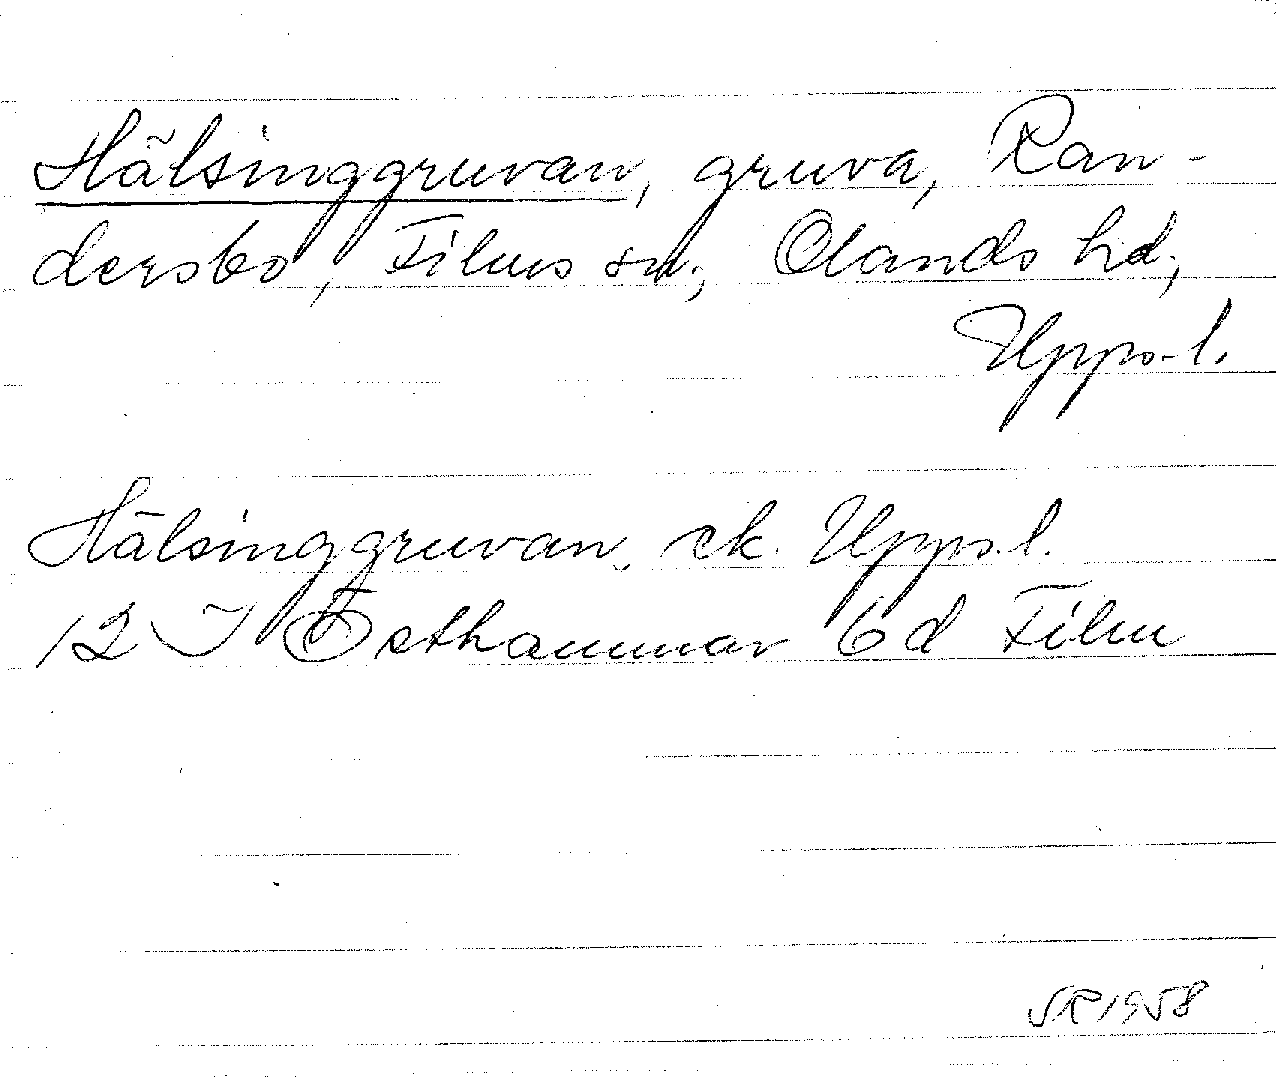 Hälsinggruvan, gruva, Ran-
dersbo, Films sn, Olands hd,
Upps.l.
Hälsinggruvan, ek. Upps.l.
12 I Östhammar 6d Film
SR 1958